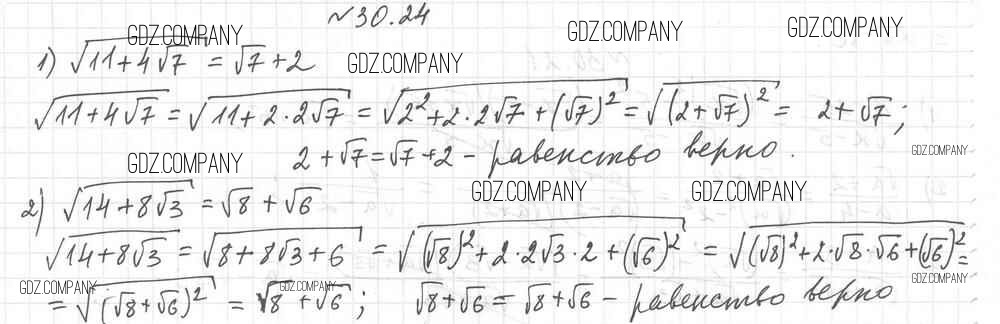 №30.24
GDZ.COMPANY GDZ.COMPANY GDZ.COMPANY
1) √(11+4√7) = √7+2 GDZ.COMPANY
√(11+4√7) = √(11+2·2√7) = √(2²+2·2√7+(√7)²) = √((2+√7)²) = 2+√7;
GDZ.COMPANY 2+√7=√7+2 – равенство верно. GDZ.COMPANY
2) √(14+8√3) = √8+√6 GDZ.COMPANY GDZ.COMPANY
√(14+8√3) = √(8+8√3+6) = √((√8)²+2·2√3·2+(√6)²) = √((√8)²+2·√8·√6+(√6)²) =
GDZ.COMPANY GDZ.COMPANY GDZ.COMPANY
= √((√8+√6)²) = √8+√6; √8+√6=√8+√6 – равенство верно